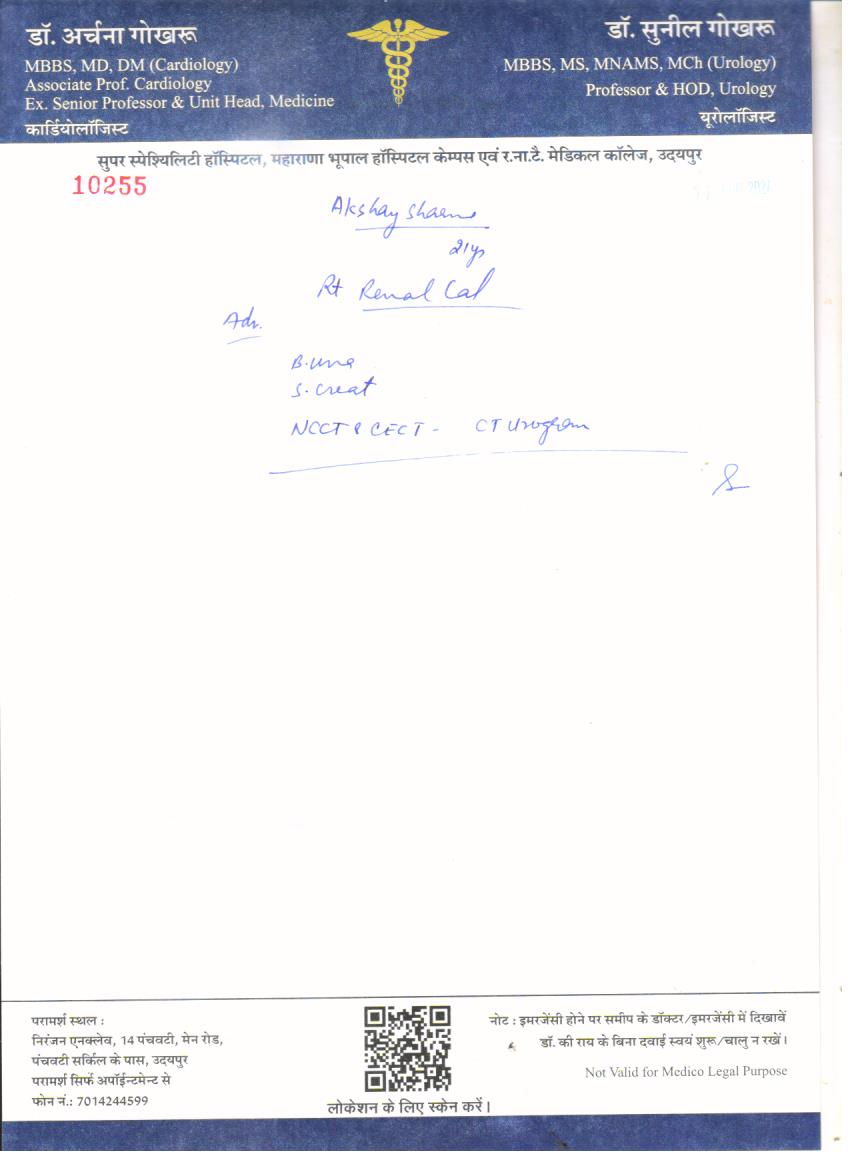 डॉ. अर्चना गोखरू
MBBS, MD, DM (Cardiology)
Associate Prof. Cardiology
Ex. Senior Professor & Unit Head, Medicine
कार्डियोलॉजिस्ट
डॉ. सुनील गोखरू
MBBS, MS, MNAMS, MCh (Urology)
Professor & HOD, Urology
यूरोलॉजिस्ट
सुपर स्पेश्यिलिटी हॉस्पिटल, महाराणा भूपाल हॉस्पिटल केम्पस एवं र.ना.टै. मेडिकल कॉलेज, उदयपुर
10255
Akshay
21yr
Rt Renal Cal
Adv.
B. Urea
S. Creat
NCCT & CECT - CT Urogram
परामर्श स्थल :
निरंजन एनक्लेव, 14 पंचवटी, मेन रोड,
पंचवटी सर्किल के पास, उदयपुर
परामर्श सिर्फ अपॉईन्टमेन्ट से
फोन नं.: 7014244599
लोकेशन के लिए स्केन करें।
नोट : इमरजेंसी होने पर समीप के डॉक्टर/इमरजेंसी में दिखावें
डॉ. की राय के बिना दवाई स्वयं शुरू/चालु न रखें।
Not Valid for Medico Legal Purpose